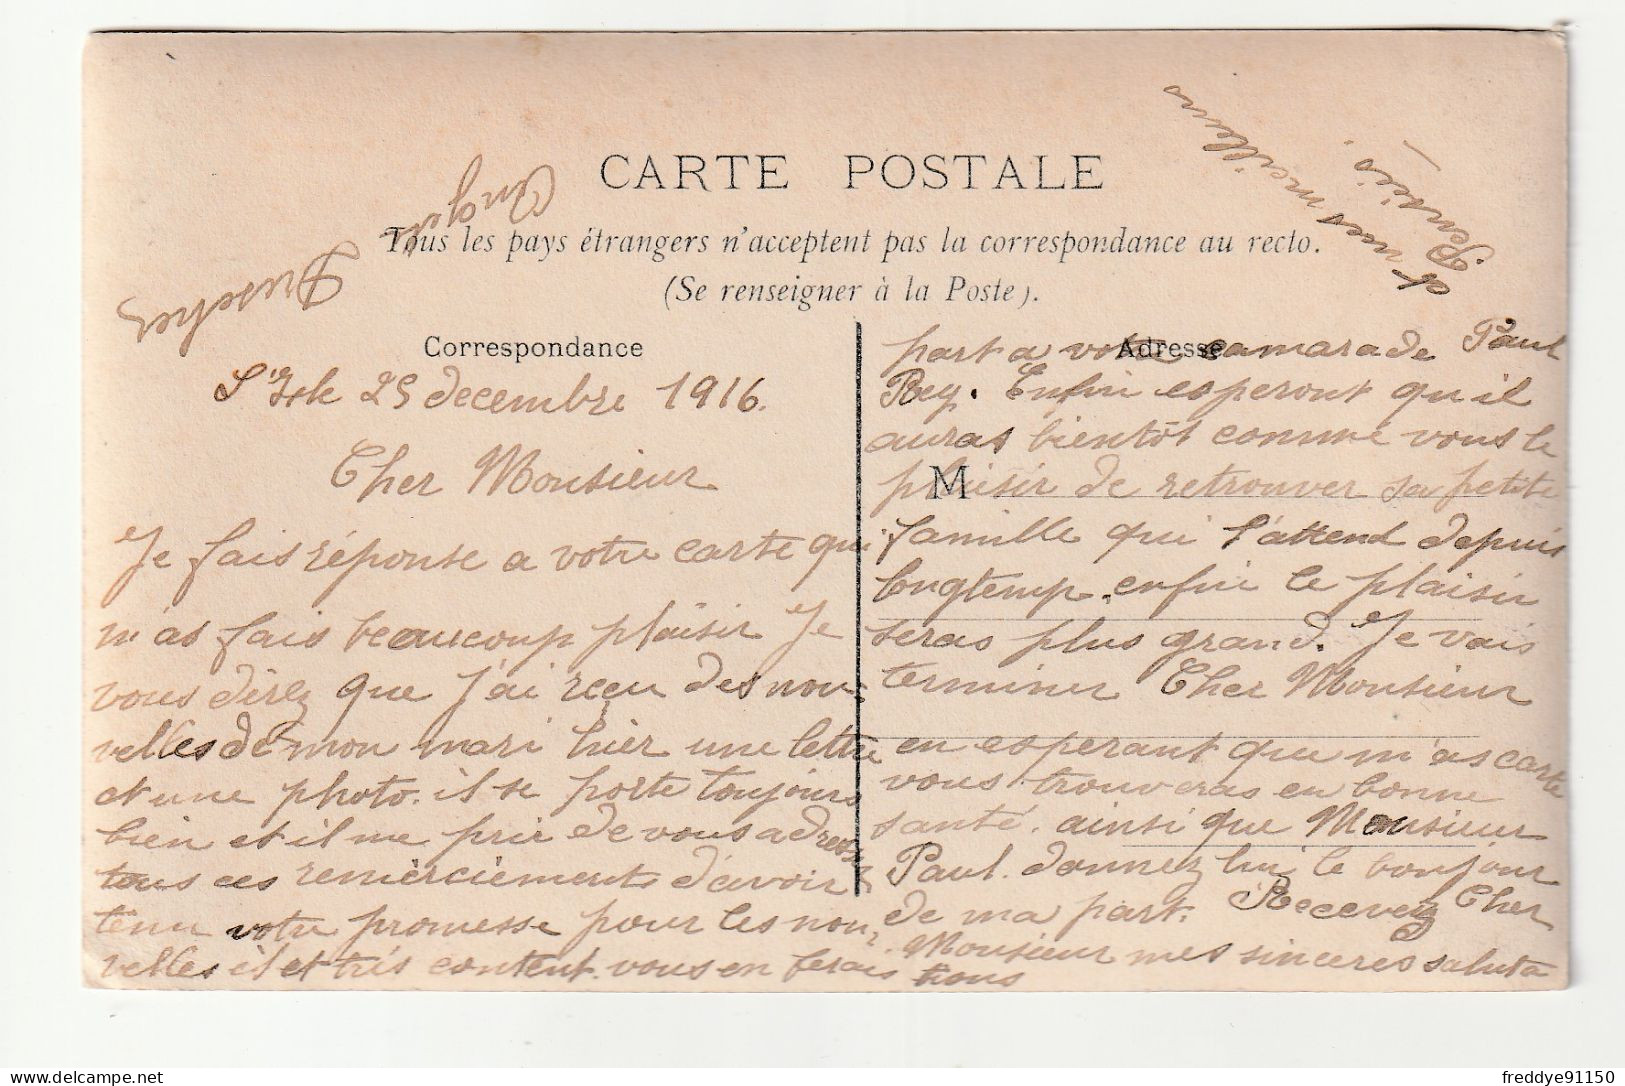 CARTE POSTALE
Tous les pays étrangers n'acceptent pas la correspondance au recto.
(Se renseigner à la Poste).
Correspondance
Adresse
M
25 decembre 1916.
Cher Monsieur
Je fais réponse a votre carte qui
m'as fais beaucoup plaisir Je
vous direz que j'ai reçu des nou-
velles de mon mari hier une lettre
et une photo. il se porte toujours
bien et il me prie de vous adresser
tous ces remerciements d'avoir
tenu votre promesse pour les nou-
velles il et très content. vous en ferais
part a votre camarade Paul
Rey. Enfin esperont qu'il
auras bientôt comme vous le
plaisir de retrouver sa petite
famille qui l'attend depuis
longtemp. enfin le plaisir
seras plus grand. Je vais
terminer Cher Monsieur
en esperant que m'as carte
vous trouveras en bonne
santé. ainsi que Monsieur
Paul. donnez lui le bonjour
de ma part. Recevez Cher
Monsieur mes sinceres saluta
tions
et mes meilleurs
Pensées.
Angèle
freddye91150